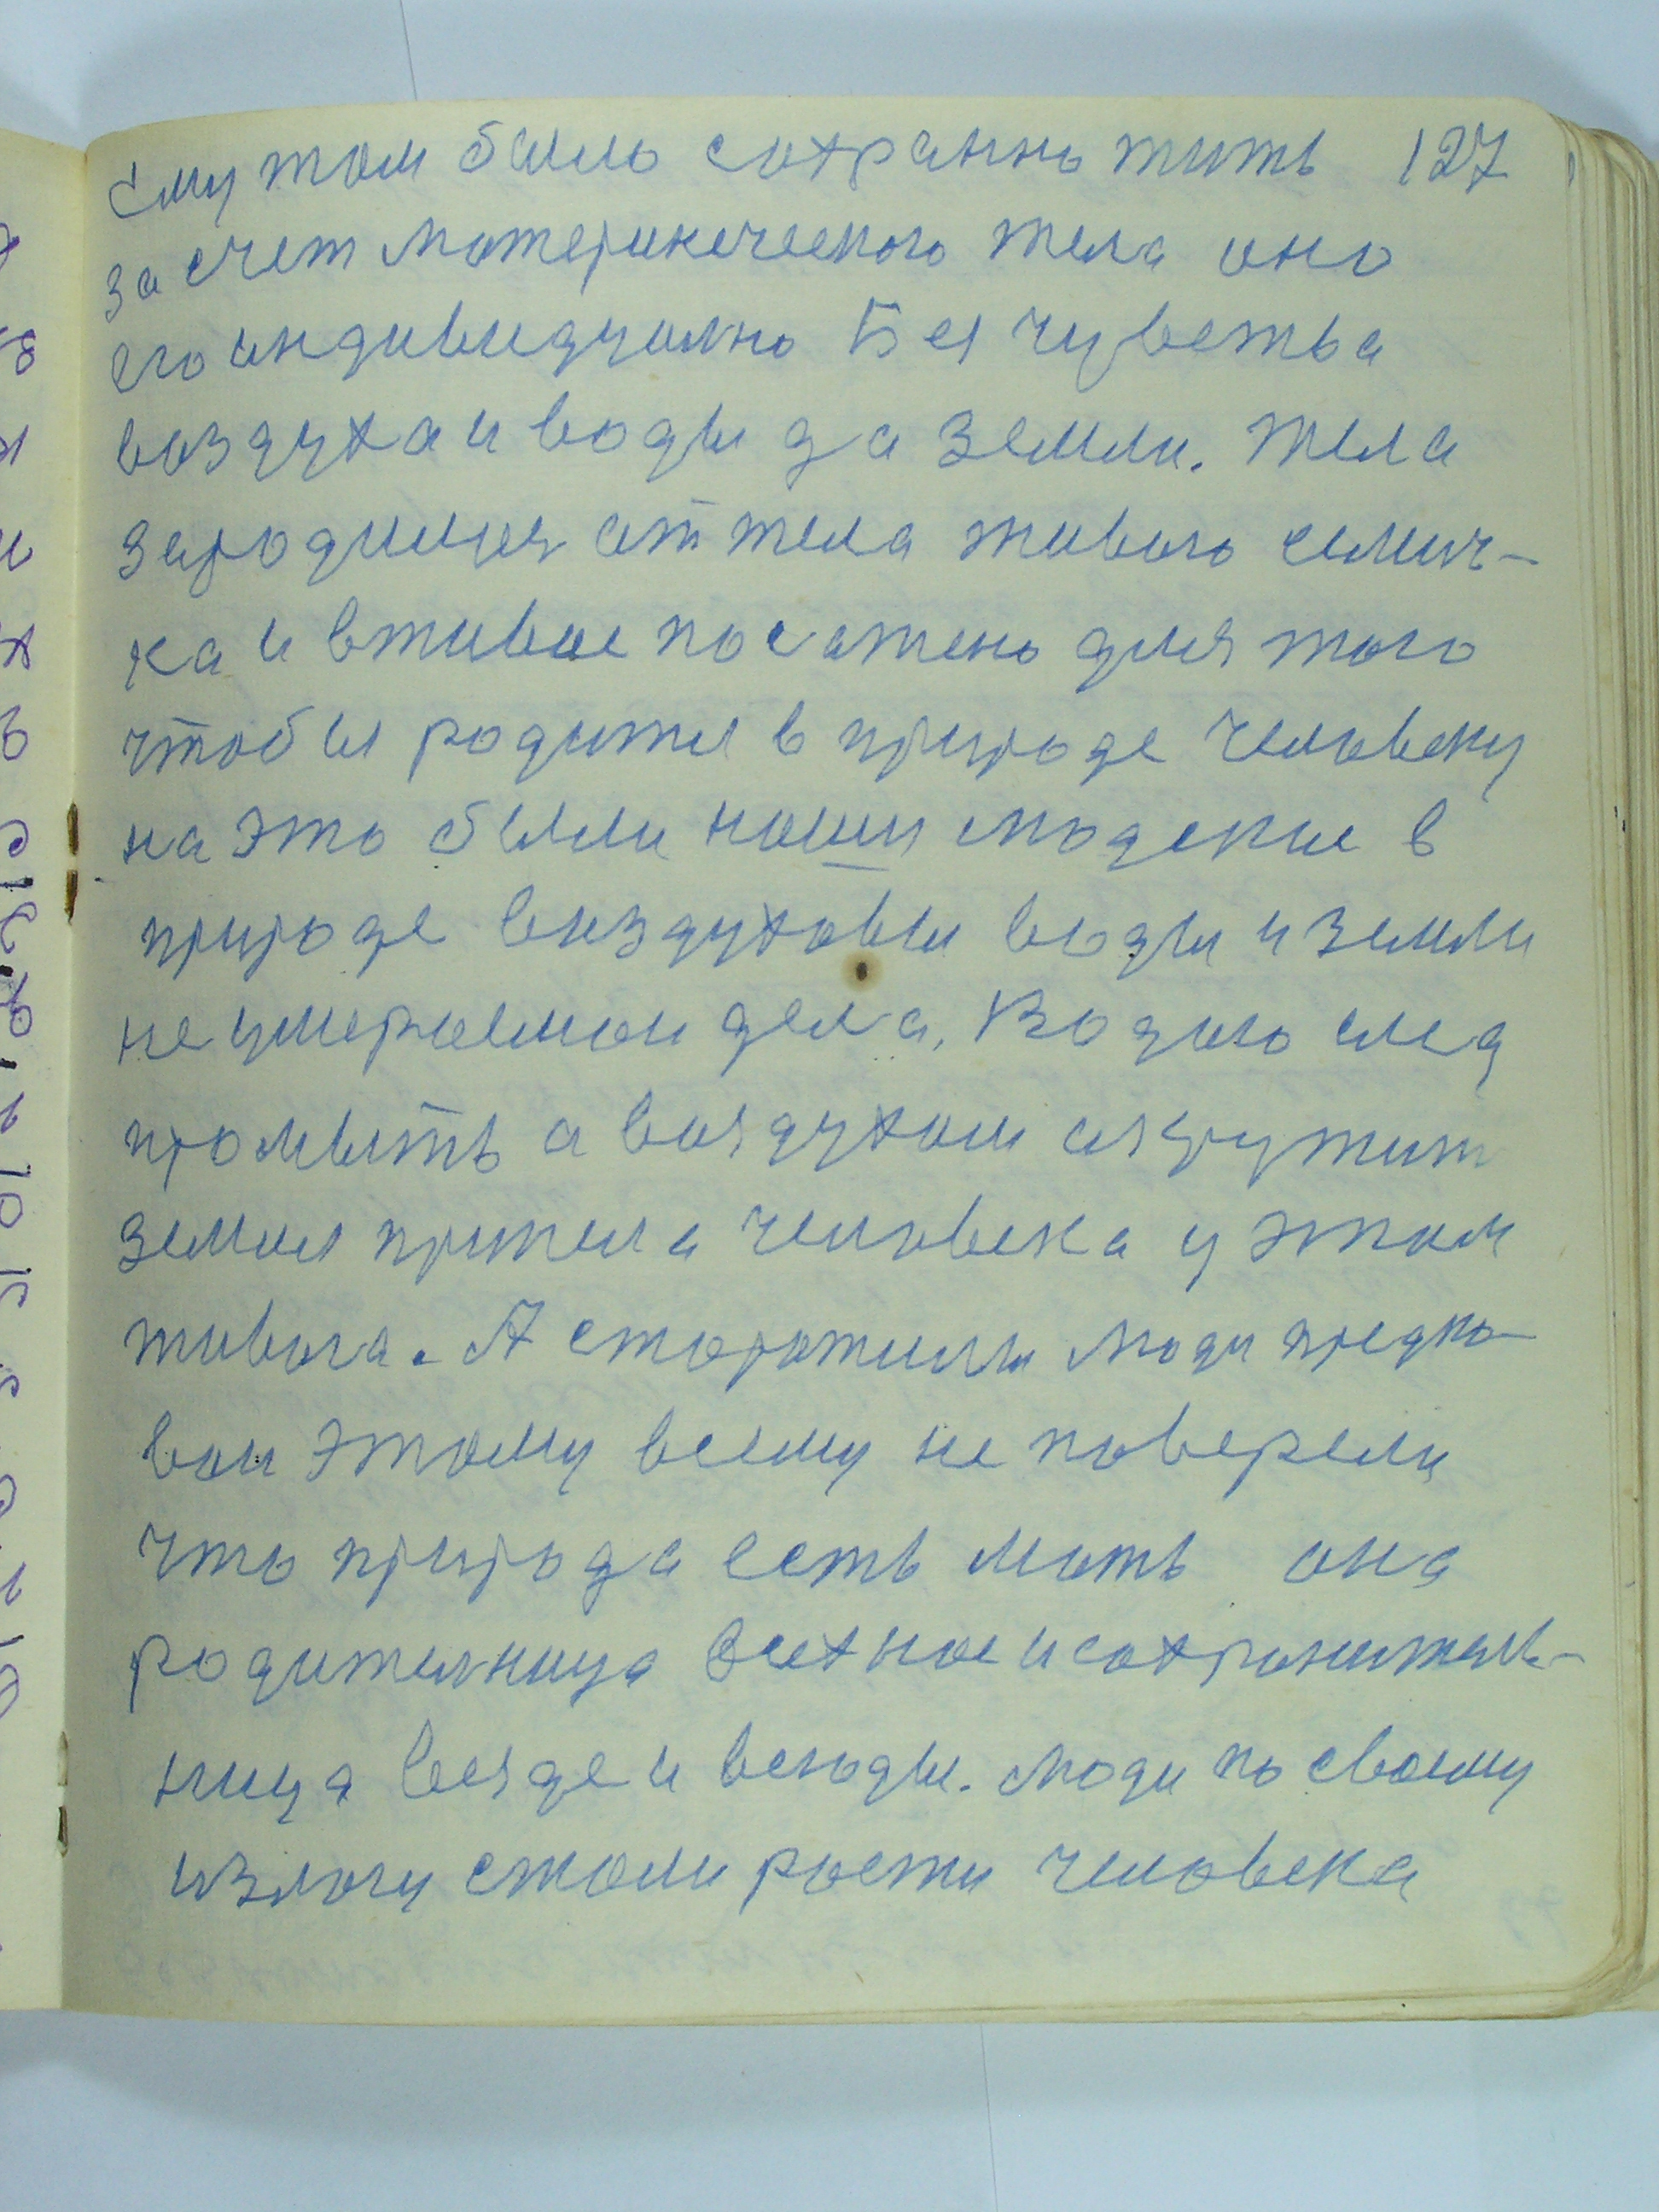 Ему там было сохранно жить 127
за счет материнеческого тела оно
его индивидуално Без чуветва
воздуха и воды да земли. Тела
зародилися от тела живого семич-
ка и вживое посажено для того
чтобы родится в природе человеку
на это были наши людские в
природе воздуховы воды и земли
неумераемаи дела. Водою след
промыть а воздухом окружит
земля притела человека у этом
живога. А старожилы люди предко-
вои этому всему не поверели
что природа есть мать она
родителница и сохранитель-
ница везде и всюды. люди по своему
излогу стали рости человека